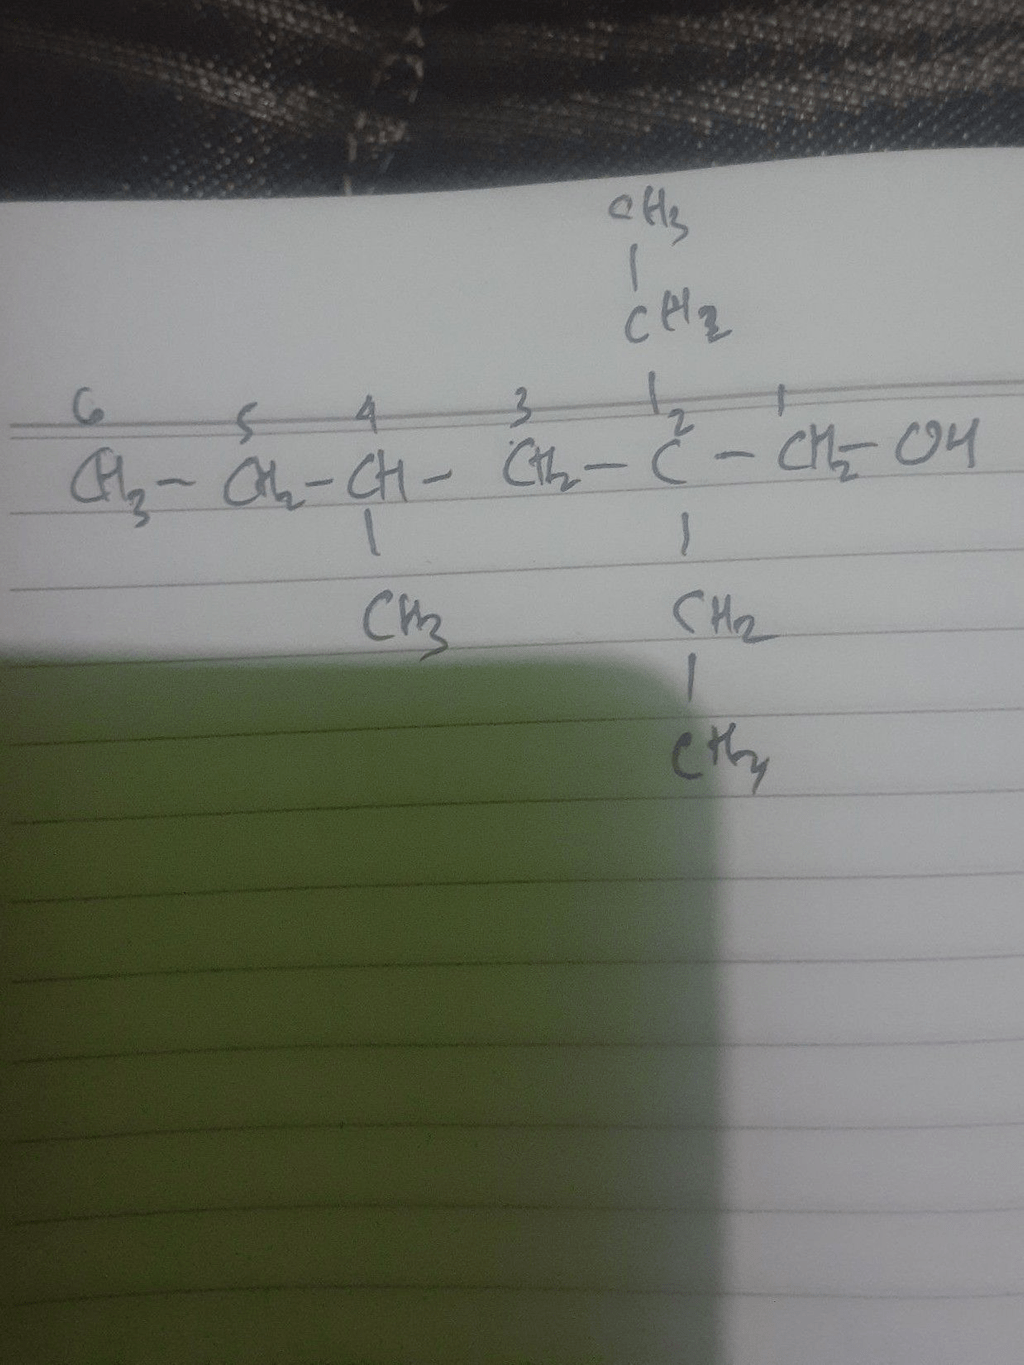 CH3
|
CH2
|
6 5 4 3 2 1
CH3 - CH2 - CH - CH2 - C - CH2 - OH
| |
CH3 CH2
|
CH3